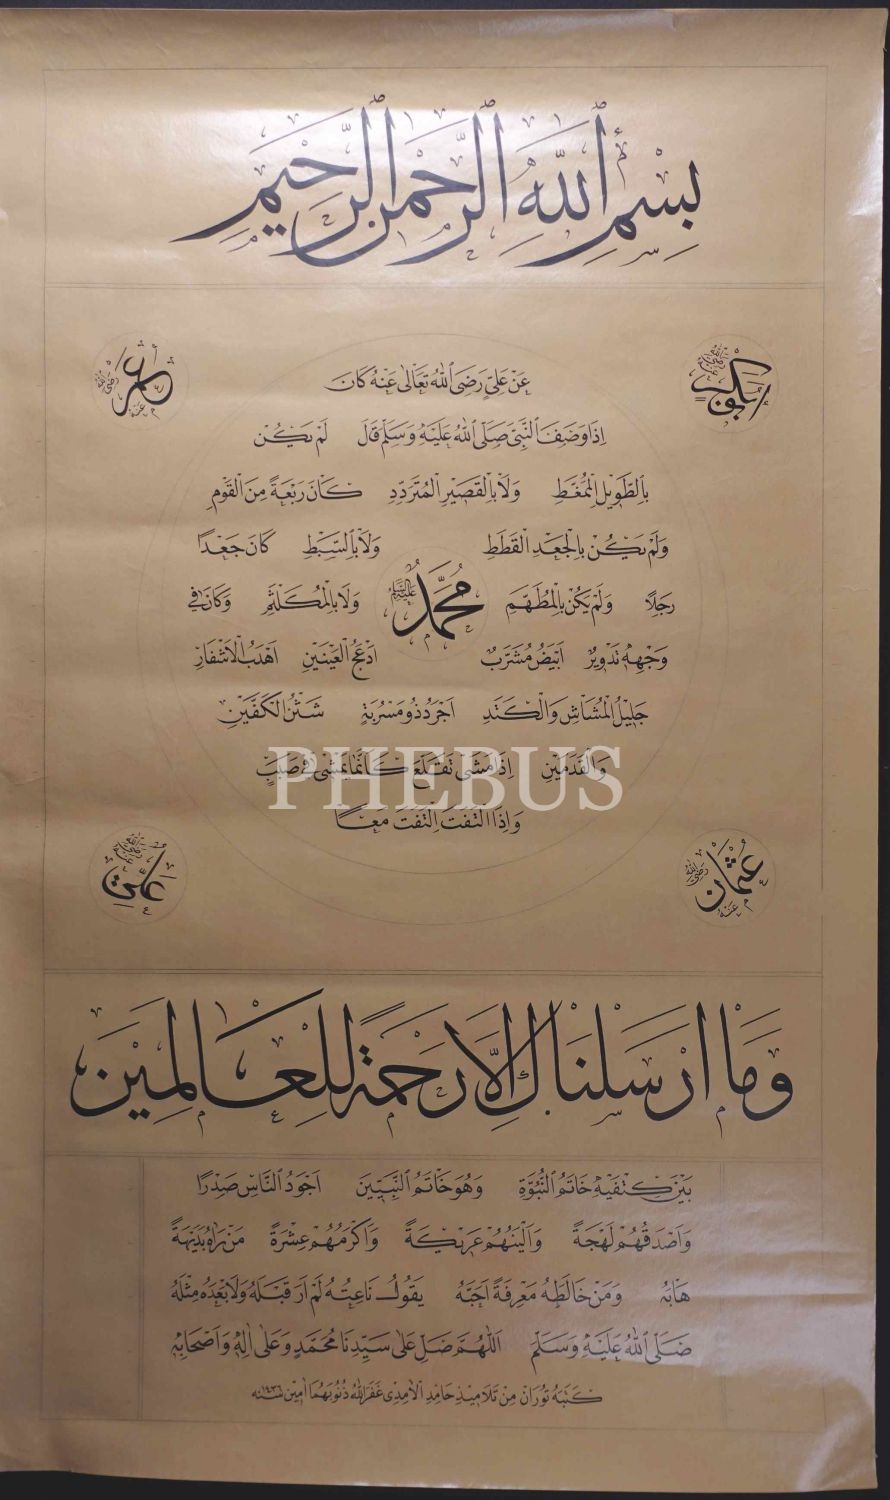 بِسْمِ اللَّهِ الرَّحْمَنِ الرَّحِيمِ
ابو بكر رضى الله عنه
عمر رضى الله عنه
عَنْ عَلِيٍّ رَضِيَ اللهُ تَعَالَى عَنْهُ كَانَ
اِذَا وَصَفَ النَّبِيَّ صَلَّى اللهُ عَلَيْهِ وَسَلَّمَ قَالَ لَمْ يَكُنْ
بِالطَّوِيلِ الْمُمَّغَطِ وَلَا بِالْقَصِيرِ الْمُتَرَدِّدِ كَانَ رَبْعَةً مِنَ الْقَوْمِ
وَلَمْ يَكُنْ بِالْجَعْدِ الْقَطَطِ وَلَا بِالسَّبْطِ كَانَ جَعْدًا
رَجِلًا وَلَمْ يَكُنْ بِالْمُطَهَّمِ وَلَا بِالْمُكَلْثَمِ وَكَانَ فِي
مُحَمَّدٌ عليه السلام
وَجْهِهِ تَدْوِيرٌ اَبْيَضُ مُشْرَبٌ اَدْعَجُ الْعَيْنَيْنِ اَهْدَبُ الْاَشْفَارِ
جَلِيلُ الْمُشَاشِ وَالْكَتَدِ اَجْرَدُ ذُو مَسْرُبَةٍ شَثْنُ الْكَفَّيْنِ
وَالْقَدَمَيْنِ اِذَا مَشَى تَقَلَّعَ كَاَنَّمَا يَمْشِي فِي صَبَبٍ
PHEBUS
وَاِذَا الْتَفَتَ اِلْتَفَتَ مَعًا
عُثْمَان رضى الله عنه
عَلِيّ رضى الله عنه
وَمَا اَرْسَلْنَاكَ اِلَّا رَحْمَةً لِلْعَالَمِينَ
بَيْنَ كَتِفَيْهِ خَاتَمُ النُّبُوَّةِ وَهُوَ خَاتَمُ النَّبِيِّينَ اَجْوَدُ النَّاسِ صَدْرًا
وَاَصْدَقُهُمْ لَهْجَةً وَاَلْيَنُهُمْ عَرِيكَةً وَاَكْرَمُهُمْ عِشْرَةً مَنْ رَاٰهُ بَدِيهَةً
هَابَهُ وَمَنْ خَالَطَهُ مَعْرِفَةً اَحَبَّهُ يَقُولُ نَاعِتُهُ لَمْ اَرَ قَبْلَهُ وَلَا بَعْدَهُ مِثْلَهُ
صَلَّى اللهُ عَلَيْهِ وَسَلَّمَ اَللّٰهُمَّ صَلِّ عَلَى سَيِّدِنَا مُحَمَّدٍ وَعَلَى اٰلِهِ وَاَصْحَابِهِ
كَتَبَهُ تُورَانْ مِنْ تَلَامِيذِ حَامِدِ الْاٰمِدِى غَفَرَ اللهُ ذُنُوبَهُمَا اٰمِين سنه